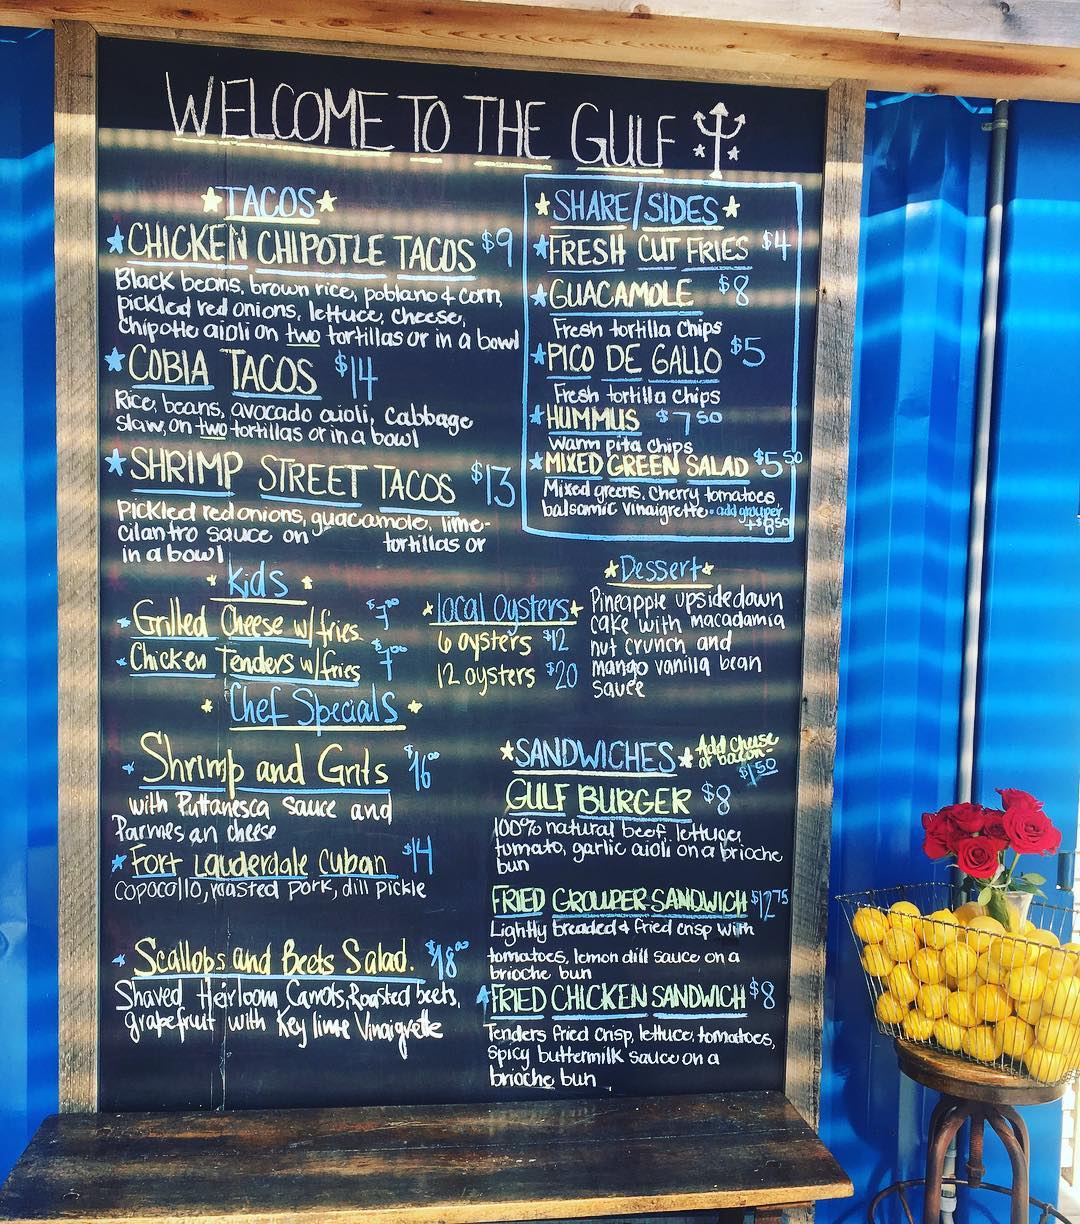 WELCOME TO THE GULF
TACOS
CHICKEN CHIPOTLE TACOS $9
Black beans, brown rice, poblano & corn,
pickled red onions, lettuce, cheese,
Chipotle aioli on two tortillas or in a bowl
COBIA TACOS $14
Rice, beans, avocado aioli, Cabbage
slaw, on two tortillas or in a bowl
SHRIMP STREET TACOS $13
Pickled red onions, guacamole, lime-
cilantro sauce on tortillas or
in a bowl
SHARE/SIDES
FRESH CUT FRIES $4
GUACAMOLE $8
Fresh tortilla chips
PICO DE GALLO $5
Fresh tortilla chips
HUMMUS $7 50
Warm pita chips
MIXED GREEN SALAD $5 50
Mixed greens, Cherry tomatoes,
balsamic vinaigrette • add grouper
+$8 50
Kids
Grilled Cheese w/fries $7 00
Chicken Tenders w/fries $7 00
local Oysters
6 oysters $12
12 oysters $20
Dessert
Pineapple upside down
cake with macadamia
nut crunch and
mango vanilla bean
sauce
Chef Specials
Shrimp and Grits $16 00
with Puttanesca sauce and
Parmesan cheese
Fort Lauderdale Cuban $14
copocollo, roasted pork, dill pickle
Scallops and Beets Salad. $18 00
Shaved Heirloom Carrots, Roasted beets,
grapefruit with Key lime Vinaigrette
SANDWICHES
Add cheese
or bacon-
$1 50
GULF BURGER $8
100% natural beef, lettuce,
tomato, garlic aioli on a brioche
bun
FRIED GROUPER SANDWICH $12 75
Lightly breaded & fried crisp with
tomatoes, lemon dill sauce on a
brioche bun
FRIED CHICKEN SANDWICH $8
Tenders fried crisp, lettuce, tomatoes,
spicy buttermilk sauce on a
brioche bun